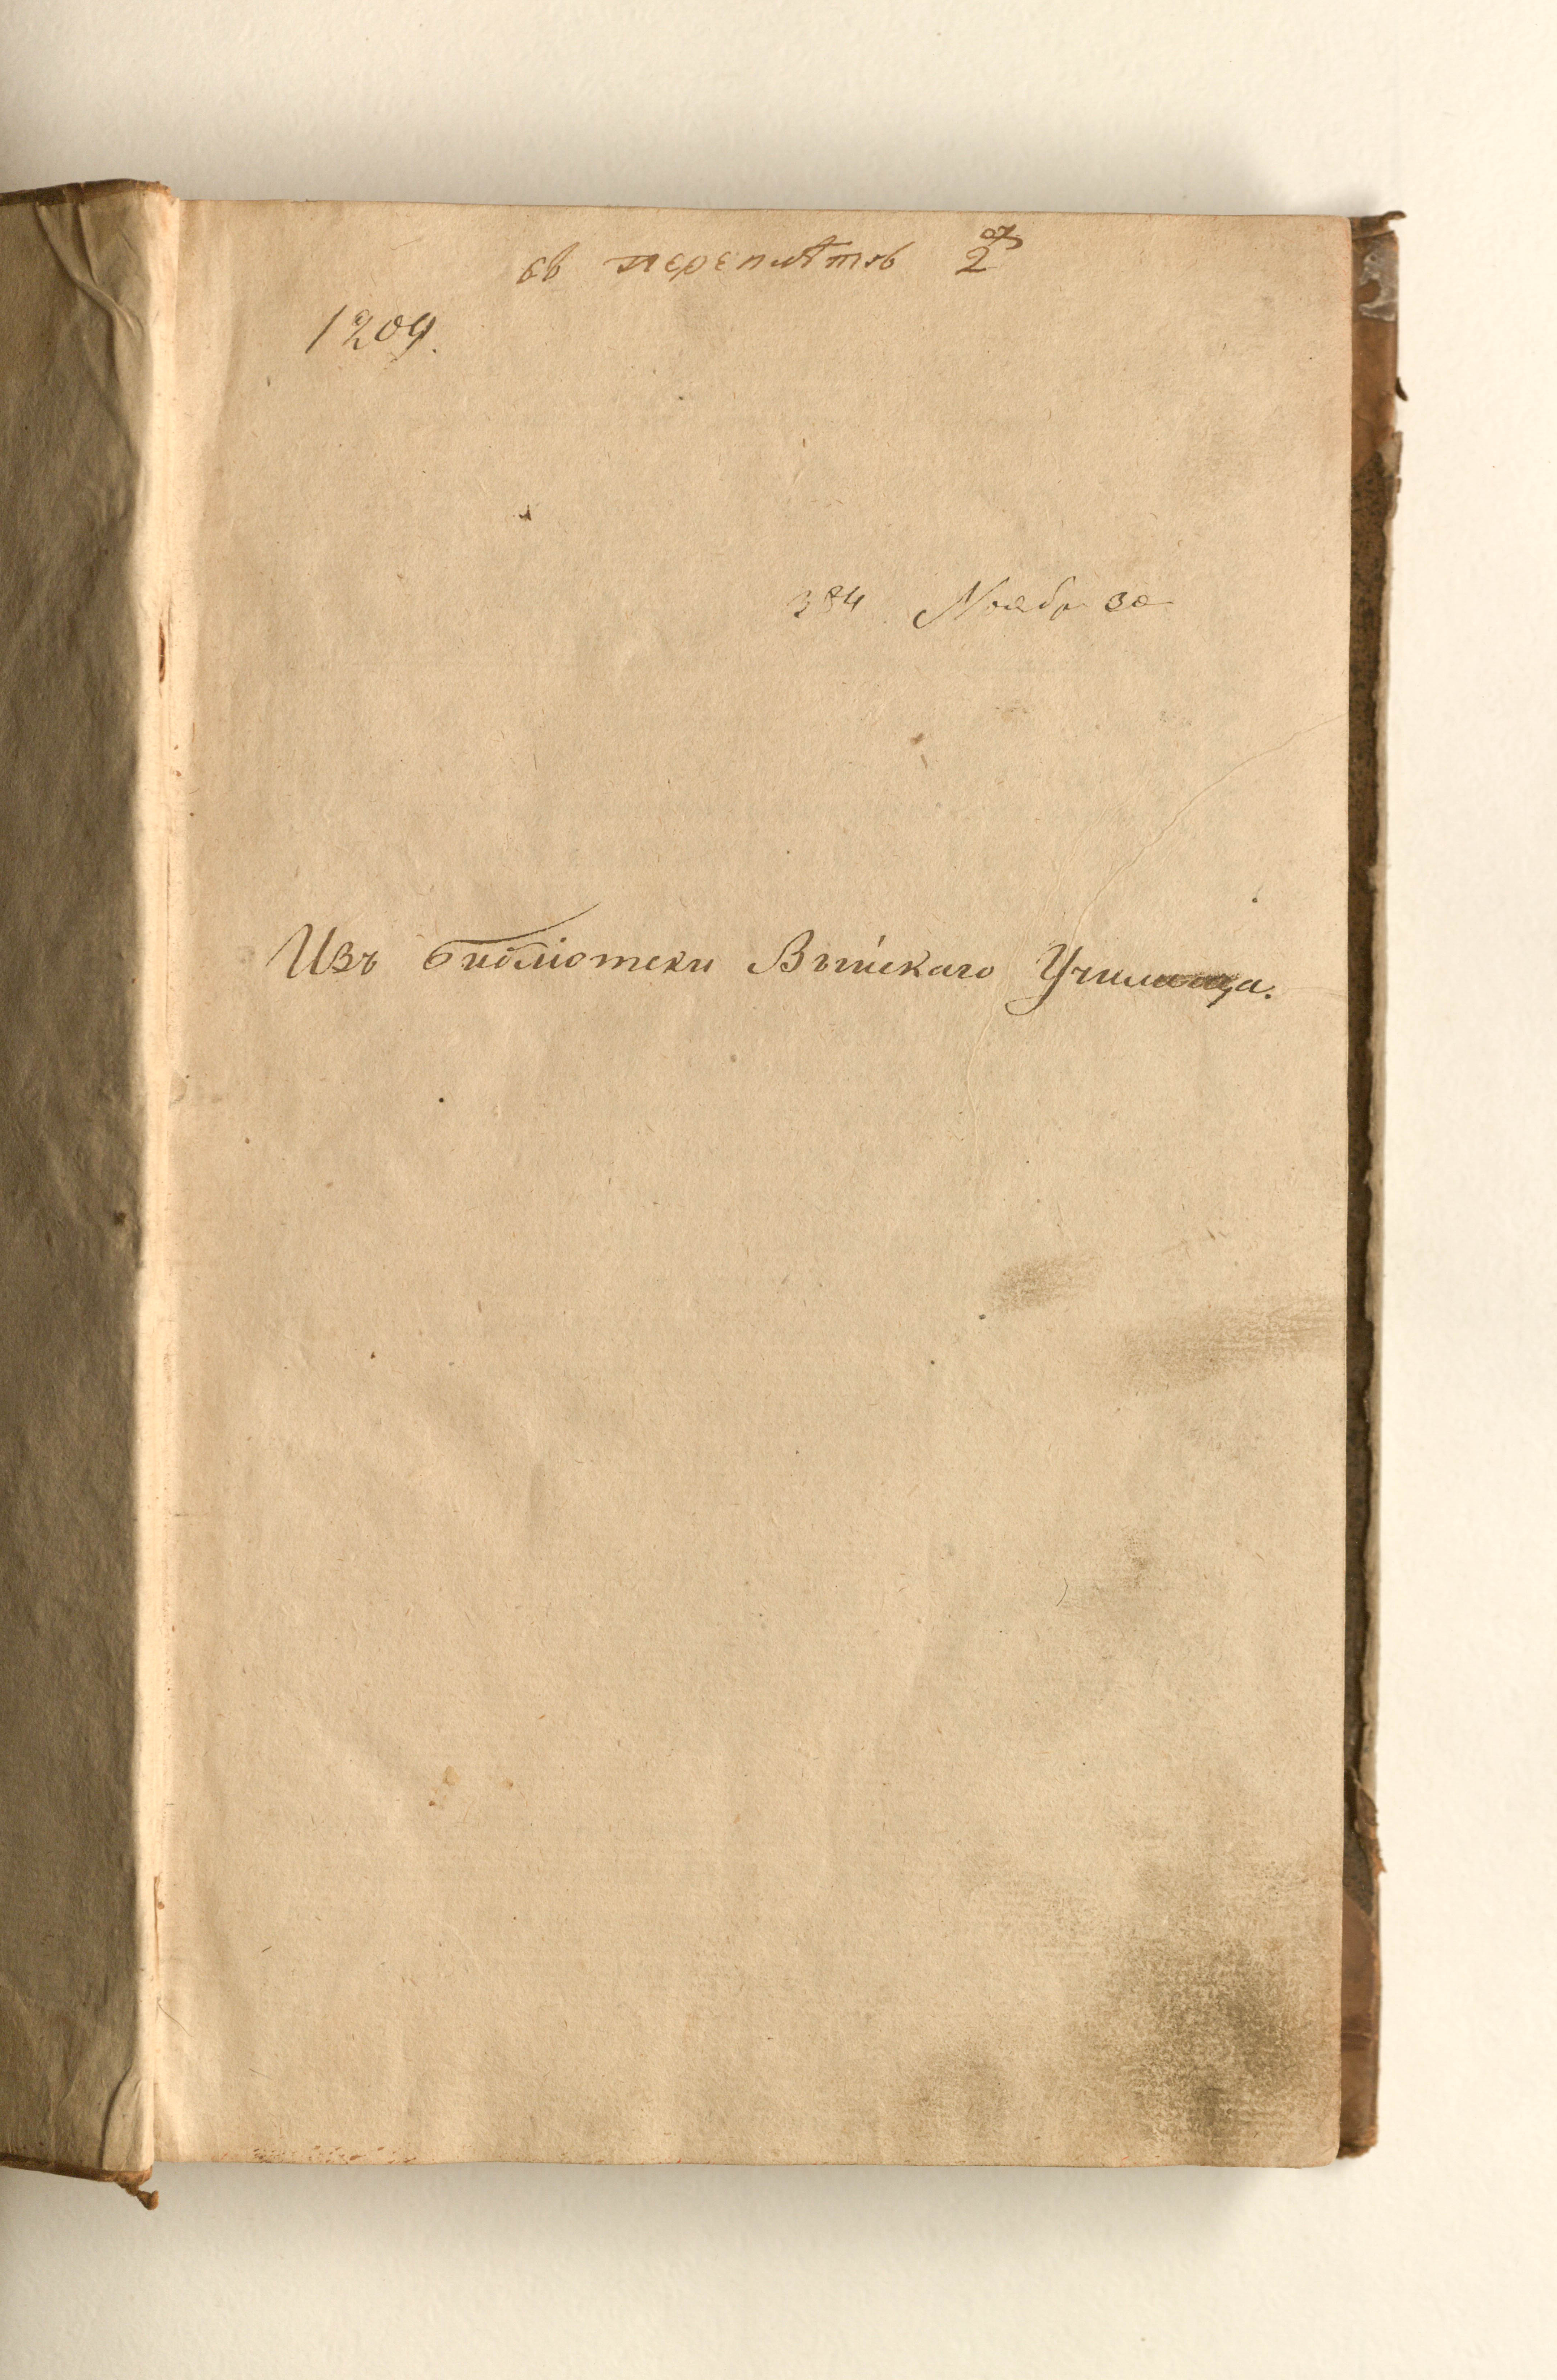 въ переплѣтъ 2
1209.
384 Ноябр 30
Изъ библіотеки Выйскаго Училища.